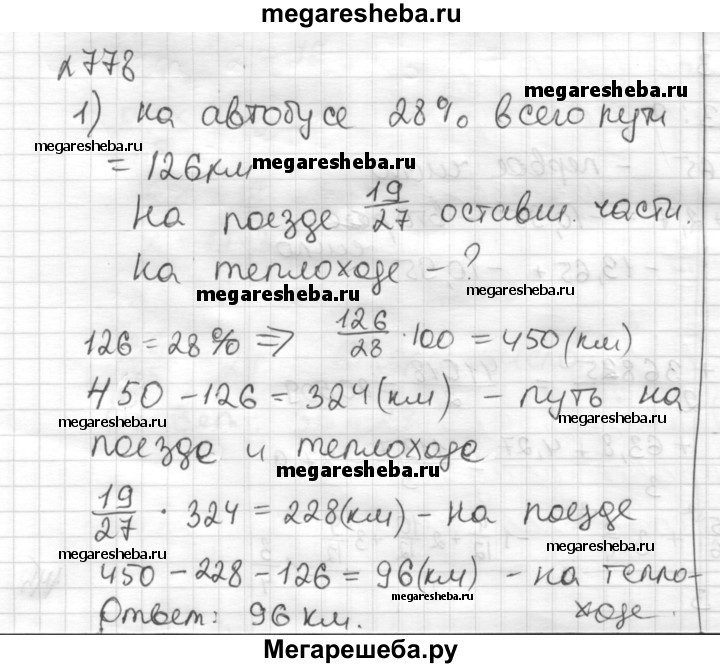 megaresheba.ru
№778
1) на автобусе 28% всего пути
megaresheba.ru
megaresheba.ru
= 126 км
megaresheba.ru
На поезде 19/27 оставш. части.
на теплоходе - ?
megaresheba.ru
megaresheba.ru
126 = 28% ⇒ 126/28 · 100 = 450 (км)
450 - 126 = 324 (км) - путь на
megaresheba.ru
megaresheba.ru
поезде и теплоходе
megaresheba.ru
19/27 · 324 = 228 (км) - на поезде
megaresheba.ru
megaresheba.ru
450 - 228 - 126 = 96 (км) - на тепло-
megaresheba.ru
Ответ: 96 км. ходе.
Мегарешеба.ру